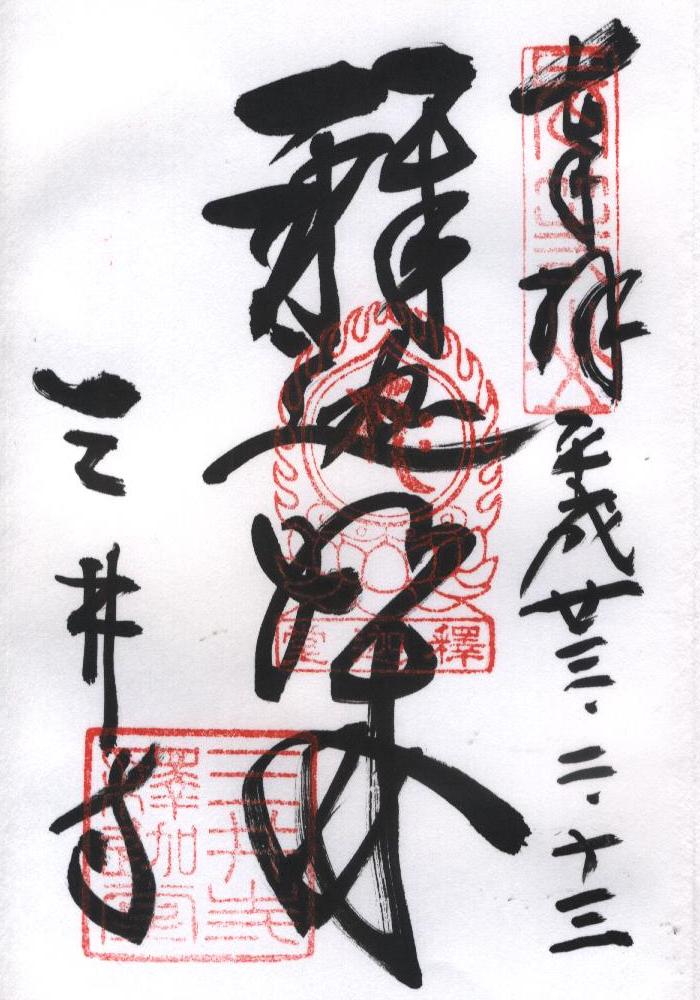 奉拝
平成廿三.二.十三
釋迦如来
釋迦堂
三井寺
三井寺
釋迦堂